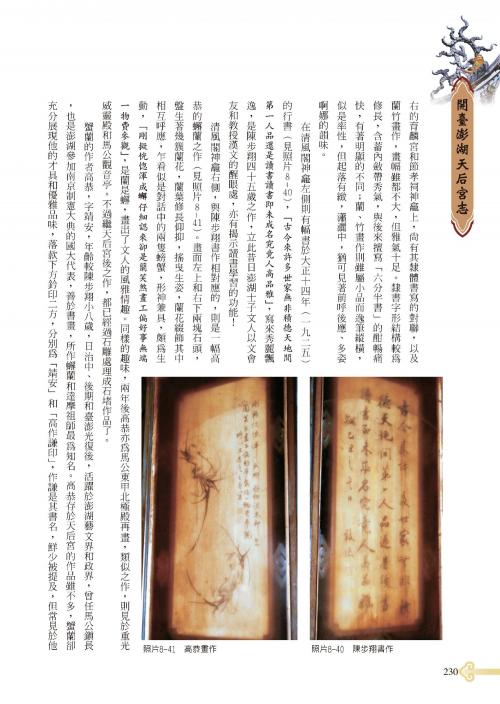 開臺澎湖天后宮志
右的育麟宮和節孝祠神龕上，尚有其隸體書寫的對聯，以及
蘭竹畫作，畫幅雖都不大，但雅氣十足。隸書字形結構較為
修長，含蓄內斂帶秀氣，與後來擅寫「六分半書」的酣暢痛
快，有著明顯的不同；蘭、竹畫作則雖屬小品而逸筆縱橫，
似是率性，但起落有緻，瀟灑中，猶可見著前呼後應、多姿
婀娜的韻味。
在清風閣神龕左側則有幅書於大正十四年（一九二五）
的行書（見照片8-40），「古今來許多世家無非積德天地間
第一人品還是讀書讀書即未成名究竟人高品雅」，寫來秀麗飄
逸，是陳步翔四十五歲之作，立此昔日澎湖士子文人以文會
友和教授漢文的醒眼處，亦有揭示讀書學習的功能！
清風閣神龕右側，與陳步翔書作相對應的，則是一幅高
恭的蟹蘭之作（見照片8-41）。畫面左上和右下兩塊石頭，
盤生著幾簇蘭花，蘭葉修長仰抑，搖曳生姿，蘭花綴飾其中
相互呼應，乍看似是對話中的兩隻螃蟹，形神兼具，頗為生
動，「剛擬恍惚渾成蟹仔細認來卻是蘭笑煞畫工偏好事無端
一物費參觀」，是蘭是蟹，畫出了文人的風雅情趣。同樣的趣味，兩年後高恭亦為馬公東甲北極殿再畫，類似之作，則見於重光
威靈殿和馬公觀音亭。不過繼天后宮後之作，都已經過石雕處理成石堵作品了。
蟹蘭的作者高恭，字靖安，年齡較陳步翔小八歲，日治中、後期和臺澎光復後，活躍於澎湖藝文界和政界，曾任馬公鎮長
，也是澎湖參加南京制憲大典的國大代表，善於書畫，所作蟹蘭和達摩祖師最為知名。高恭存於天后宮的作品雖不多，蟹蘭卻
充分展現他的才具和優雅品味，落款下方鈐印二方，分別為「靖安」和「高作謙印」，作謙是其書名，鮮少被提及，但常見於他
照片8-40 陳步翔書作
照片8-41 高恭畫作
230